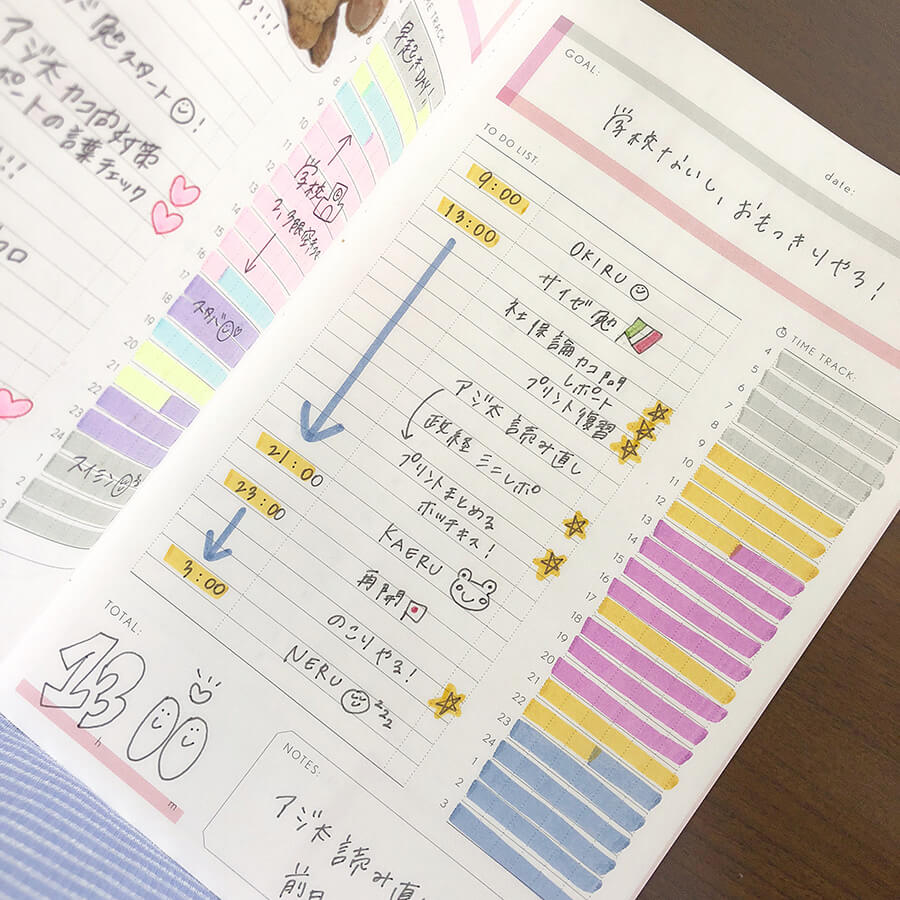 勉スタート
アジ太 カコ問対策
ポイントの言葉チェック
TIME TRACK
早起きDAY!
5
6
7
8
9
10
11
12
13
14
15
16
17
18
19
20
21
22
23
24
1
2
3
学校
スタバ
スイミン
GOAL:
date:
学校ないし、おもっきりやろ!
TO DO LIST:
9:00
OKIRU
13:00
サイゼ勉
社保論カコ問
レポート
プリント復習
アジ太 読み直し
政経 ミニレポ
プリントまとめる
ホッチキス!
21:00
KAERU
23:00
再開
のこりやる!
3:00
NERU zzz
TIME TRACK:
4
5
6
7
8
9
10
11
12
13
14
15
16
17
18
19
20
21
22
23
24
1
2
3
TOTAL:
13 h 00 m
NOTES:
アジ太 読み直
前日